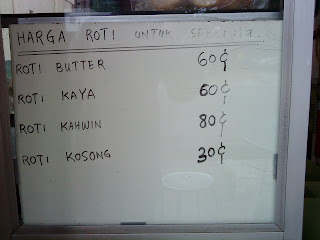 HARGA ROTI UNTUK
ROTI BUTTER 60¢
ROTI KAYA 60¢
ROTI KAHWIN 80¢
ROTI KOSONG 30¢